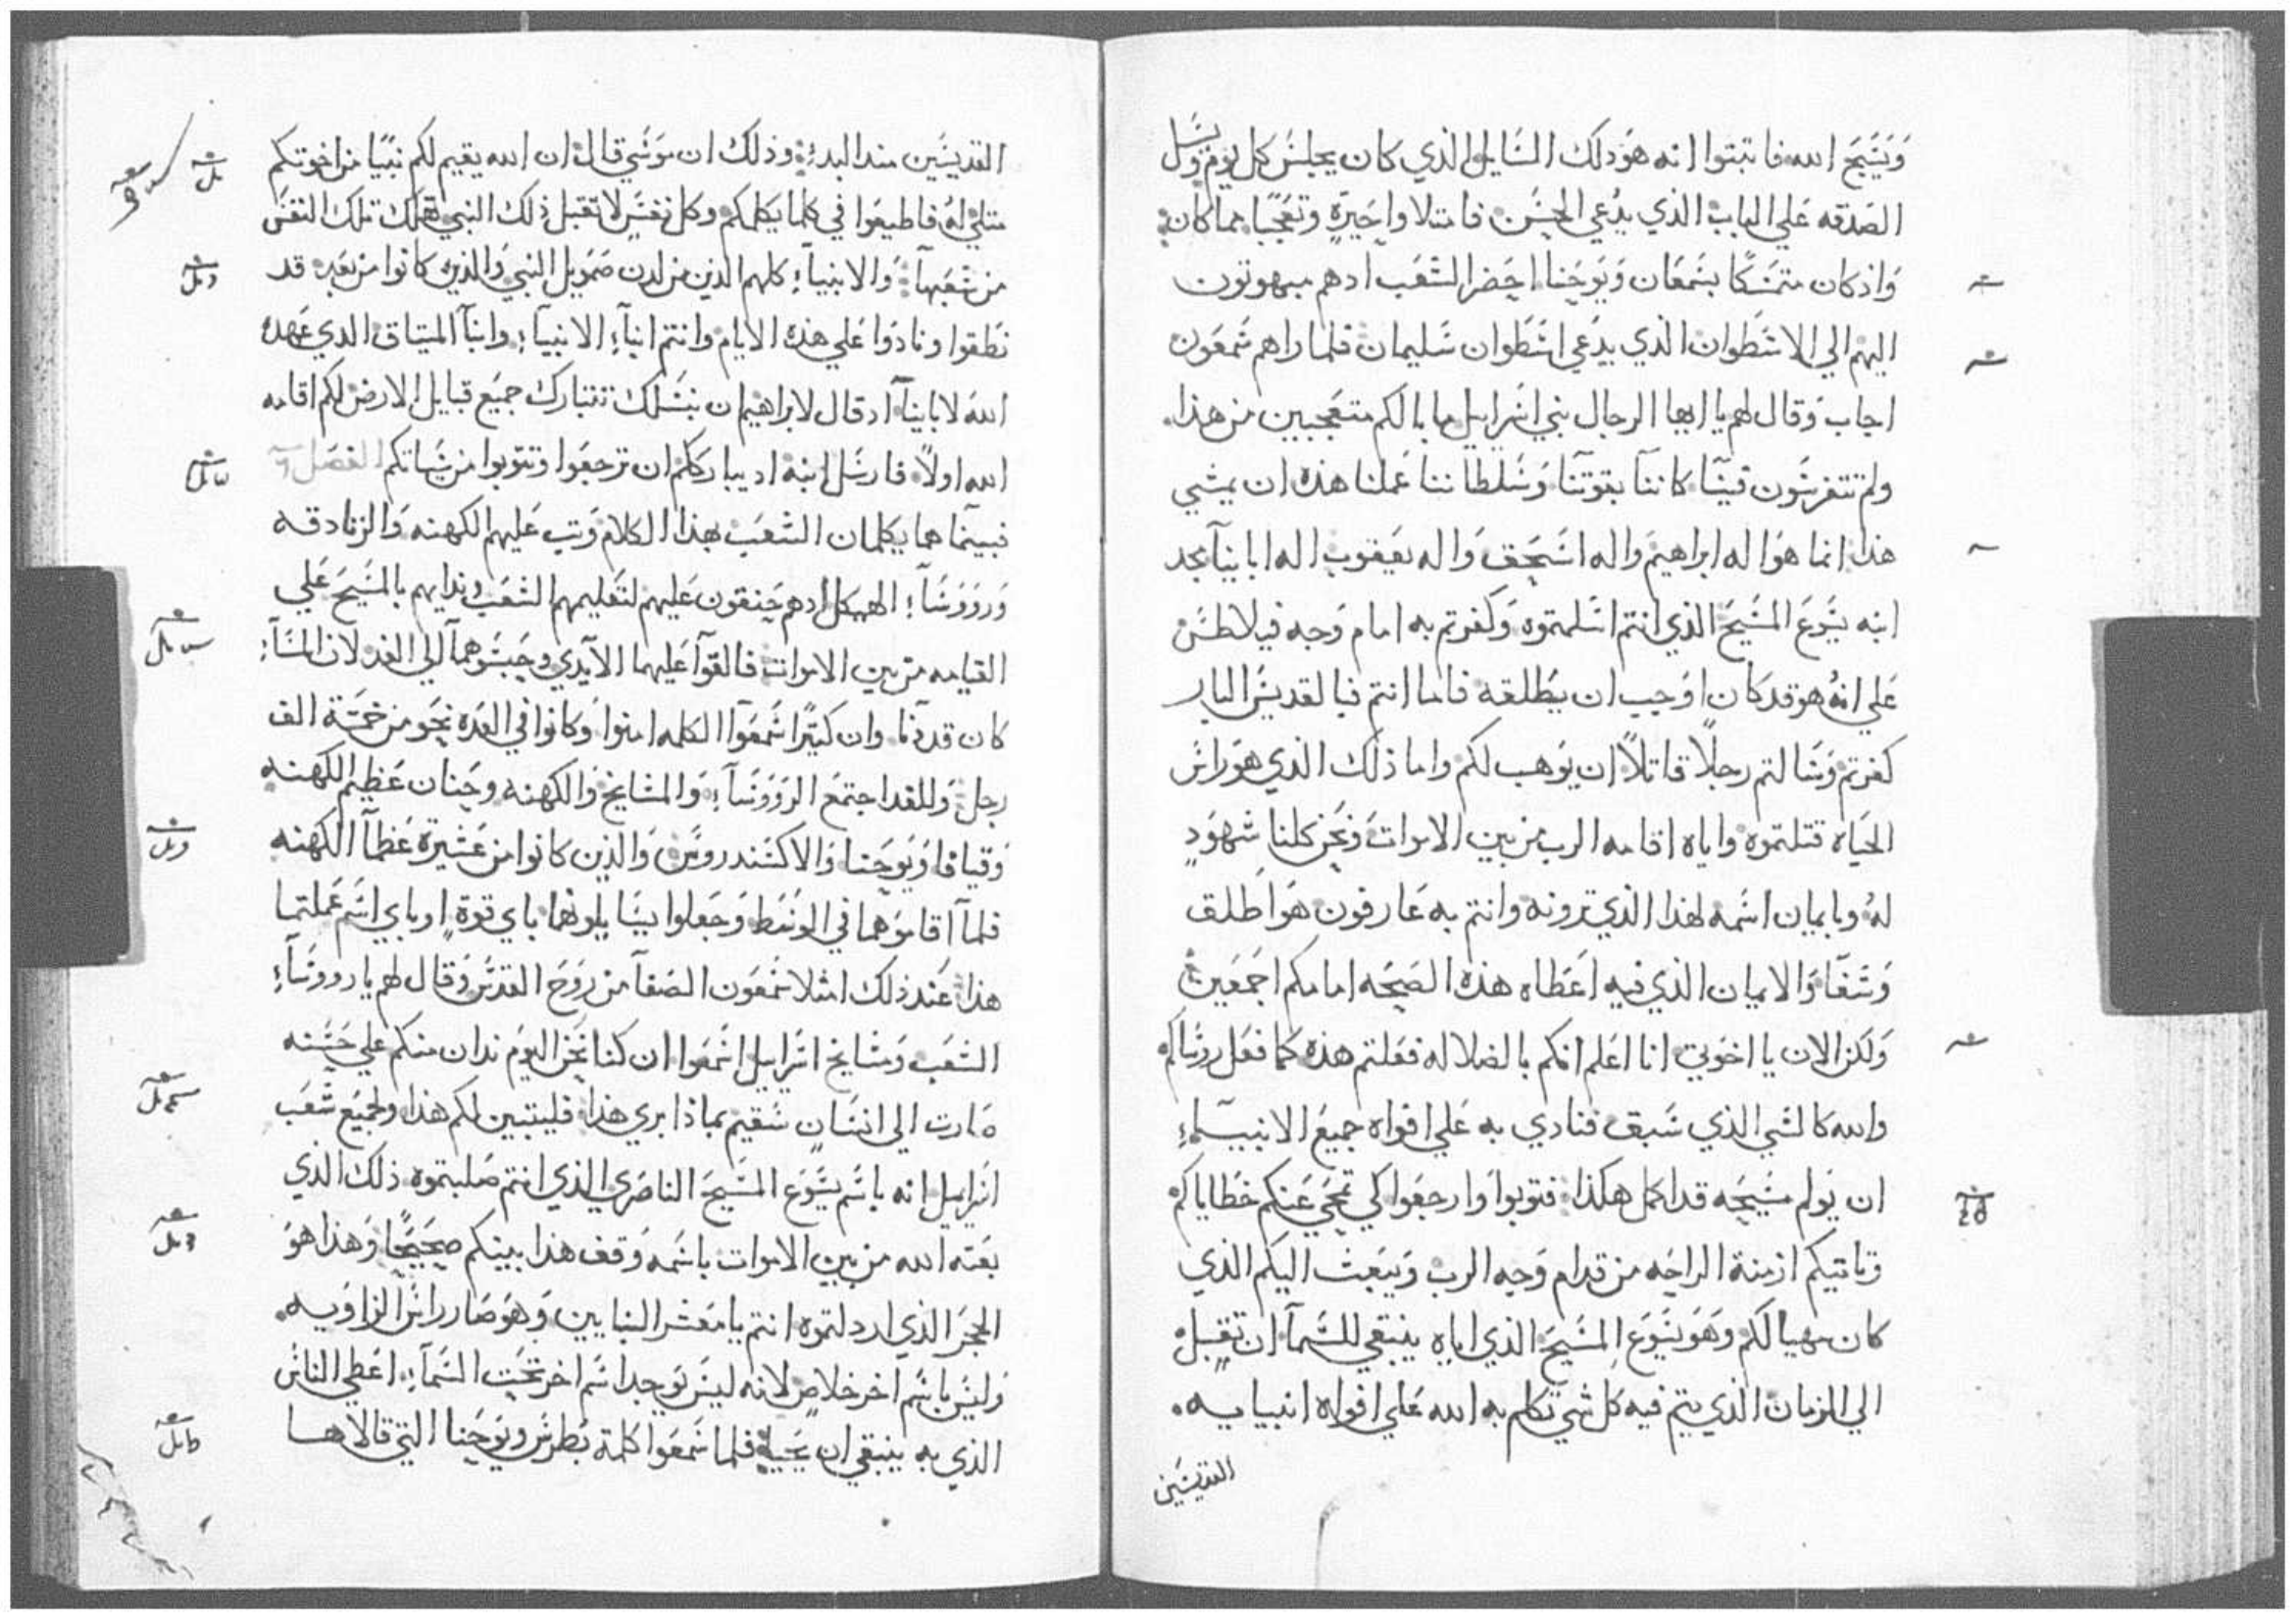 وَيَسَبِّحَ الله فاتبتوا انه هوَ ذلك السَايل الذي كان يجلسَ كل يومِ وَيسَل
الصَدقه عَلي الباب الذي يدُعي الحِسَن فامتلاوا حَيرةٍ وتعَجّبًا مما كان
وَاذ كان متمسَكًا بشمعَان وَيوَحَنا احَضر الشعَب ادهم مبهوتون
اليهم الي الاسَطوان الذي يدَعي اسَطوان سَليمان فلما راهم شمعَون
اجاب وَقال لهم يا ايها الرجال بني اسَراييل ما بالكم متعَجبين من هذا
ولم تتفرسَون فينَا كاننآ بقوتنَا وَسَلطاننا عَملنا هذه ان يمشي
هذا انما هوَ اله ابراهيمَ واله اسَحَق وَاله يعَقوب اله اباينآ مجد
ابنه يسَوعَ المسَيحَ الذي انتم اسَلمتموه وَكفرتم به امام وَجه فيلاطسَ
عَلي انهُ هو قد كان اوَجب ان يطلقه فاما انتم فبالقديسَ البار
كفرتم وَسَالتم رجلاً قاتلاً ان يوَهب لكم واما ذلك الذي هوَ راسَ
الحَياه قتلتموه واياه اقامه الرب من بين الاموات وَنحَن كلنا شهوَدٍ
لهُ وبايمان اسَمه لهذا الذي ترونه وانتم به عَارفون هوَ اطلق
وَشفَا وَالايمان الذي فيه اعَطاه هذه الصَحَه امامكم اجمَعَين
وَلكن الان يا اخوَتي انا اعَلم انكم بالضلاله فعَلتم هذه كما فعَل روسَاكم
والله كالشي الذي سَبق فنادي به عَلي افواه جميعَ الانبيآء
ان يوَلم مسَيحَه قد اكمل هكذا فتوبوا وَارجعَوا كي تمحَي عَنكم خطاياكم
وتاتيكم ازمنة الراحَه من قدام وَجه الرب وَيبعَث اليكم الذي
كان مهيا لكم وَهوَ يسَوَع المسَيحَ الذي اياه ينبغي للسَمآ ان تقبل
الي الزمان الذي يتم فيه كل شي تكلم به الله عَلي افواه انبيايه
القديسَين
القديسَين مند البدء وذلك ان موَسَي قال ان الله يقيم لكم نبيًا من اخوتكم
متلي لهُ فاطيعَوا في كلما يكلمكم وكل نفسَ لا تقبل ذلك النبي تهلك تلك النفسَ
من شعَبهآ وَالانبيآء كلهم الذين من لدن صَمَويل النبي وَالذين كانوا من بعَده قد
نطقوا ونادَوَا عَلي هذه الايام وانتم ابنآء الانبيآء وابنآ الميتاق الدي عَهده
الله لاباينآ اد قال لابراهيم ان بنسَلك تتبارك جميَع قبايل الارض لكم اقامه
الله اولاً فارسَل ابنه اد يبارككم ان ترجعَوا وَتتوبوا من سَياتكم الفصَل
فبينما هما يكلمان الشعَب بهذا الكلام وَتب عَليهم الكهنه وَالزنادقه
وَروَوَسَآء الهيكل ادهم حَنقون عَليهم لتعَليمهم الشعَب وندايهم بالمسَيحَ عَلي
القيامه من بين الاموات فالقوَا عَليهما الآيدي وحَبسَوَهمآ الي الغد لان المسَآء
كان قد دنا وان كتيرًا سَمعَوآ الكلمه امنوا وَكانوا في العَده نحَو من خمسَة الف
رجل وَللغد اجتمَع الروَوَسَآء وَالمشايخ وَالكهنه وحَنان عَظيم الكهنه
وَقيافا وَيوَحَنا وَالاكسَندروسَ وَالذين كانوا من عَشيرة عَظمآ الكهنه
فلمآ اقاموَهما في الوَسَط وَجعَلوا يسَايلونهما باي قوَة اوباي اسَم عَملتما
هذا عَند ذلك امتلا شمعَون الصَفآ من روَح القدسَ وَقال لهم يا رووسَآء
الشعَب وَمشايخ اسَراييل اسَمعَوا ان كنا نحَن اليوَم ندان منكم علي حَسَنه
صَارت الي انسَانٍ سَقيم بماذا بري هذا فليتبين لكم هذا ولجميَع شعَب
اسَراييل انه باسَم يسَوَع المسَيحَ الناصَري الذي انتم صَلبتموه ذلك الدي
بعَته الله من بين الاموات باسَمه وَقف هذا بينكم صَحَيحًا وَهذا هوَ
الحجرَ الذي ارد لتموه انتم يا معَشر البنايين وَهوَ صَار راسَ الزاوَيه
وَليسَ باسَم آخر خلاصٍ لانه ليسَ يوَجد اسَم اخر تحَت السَمآء اعَطي الناسَ
الذي به ينبغي ان يحَيا فلما سَمعَوا كلمة بَطرسَ ويوَحَنا التي قالاها